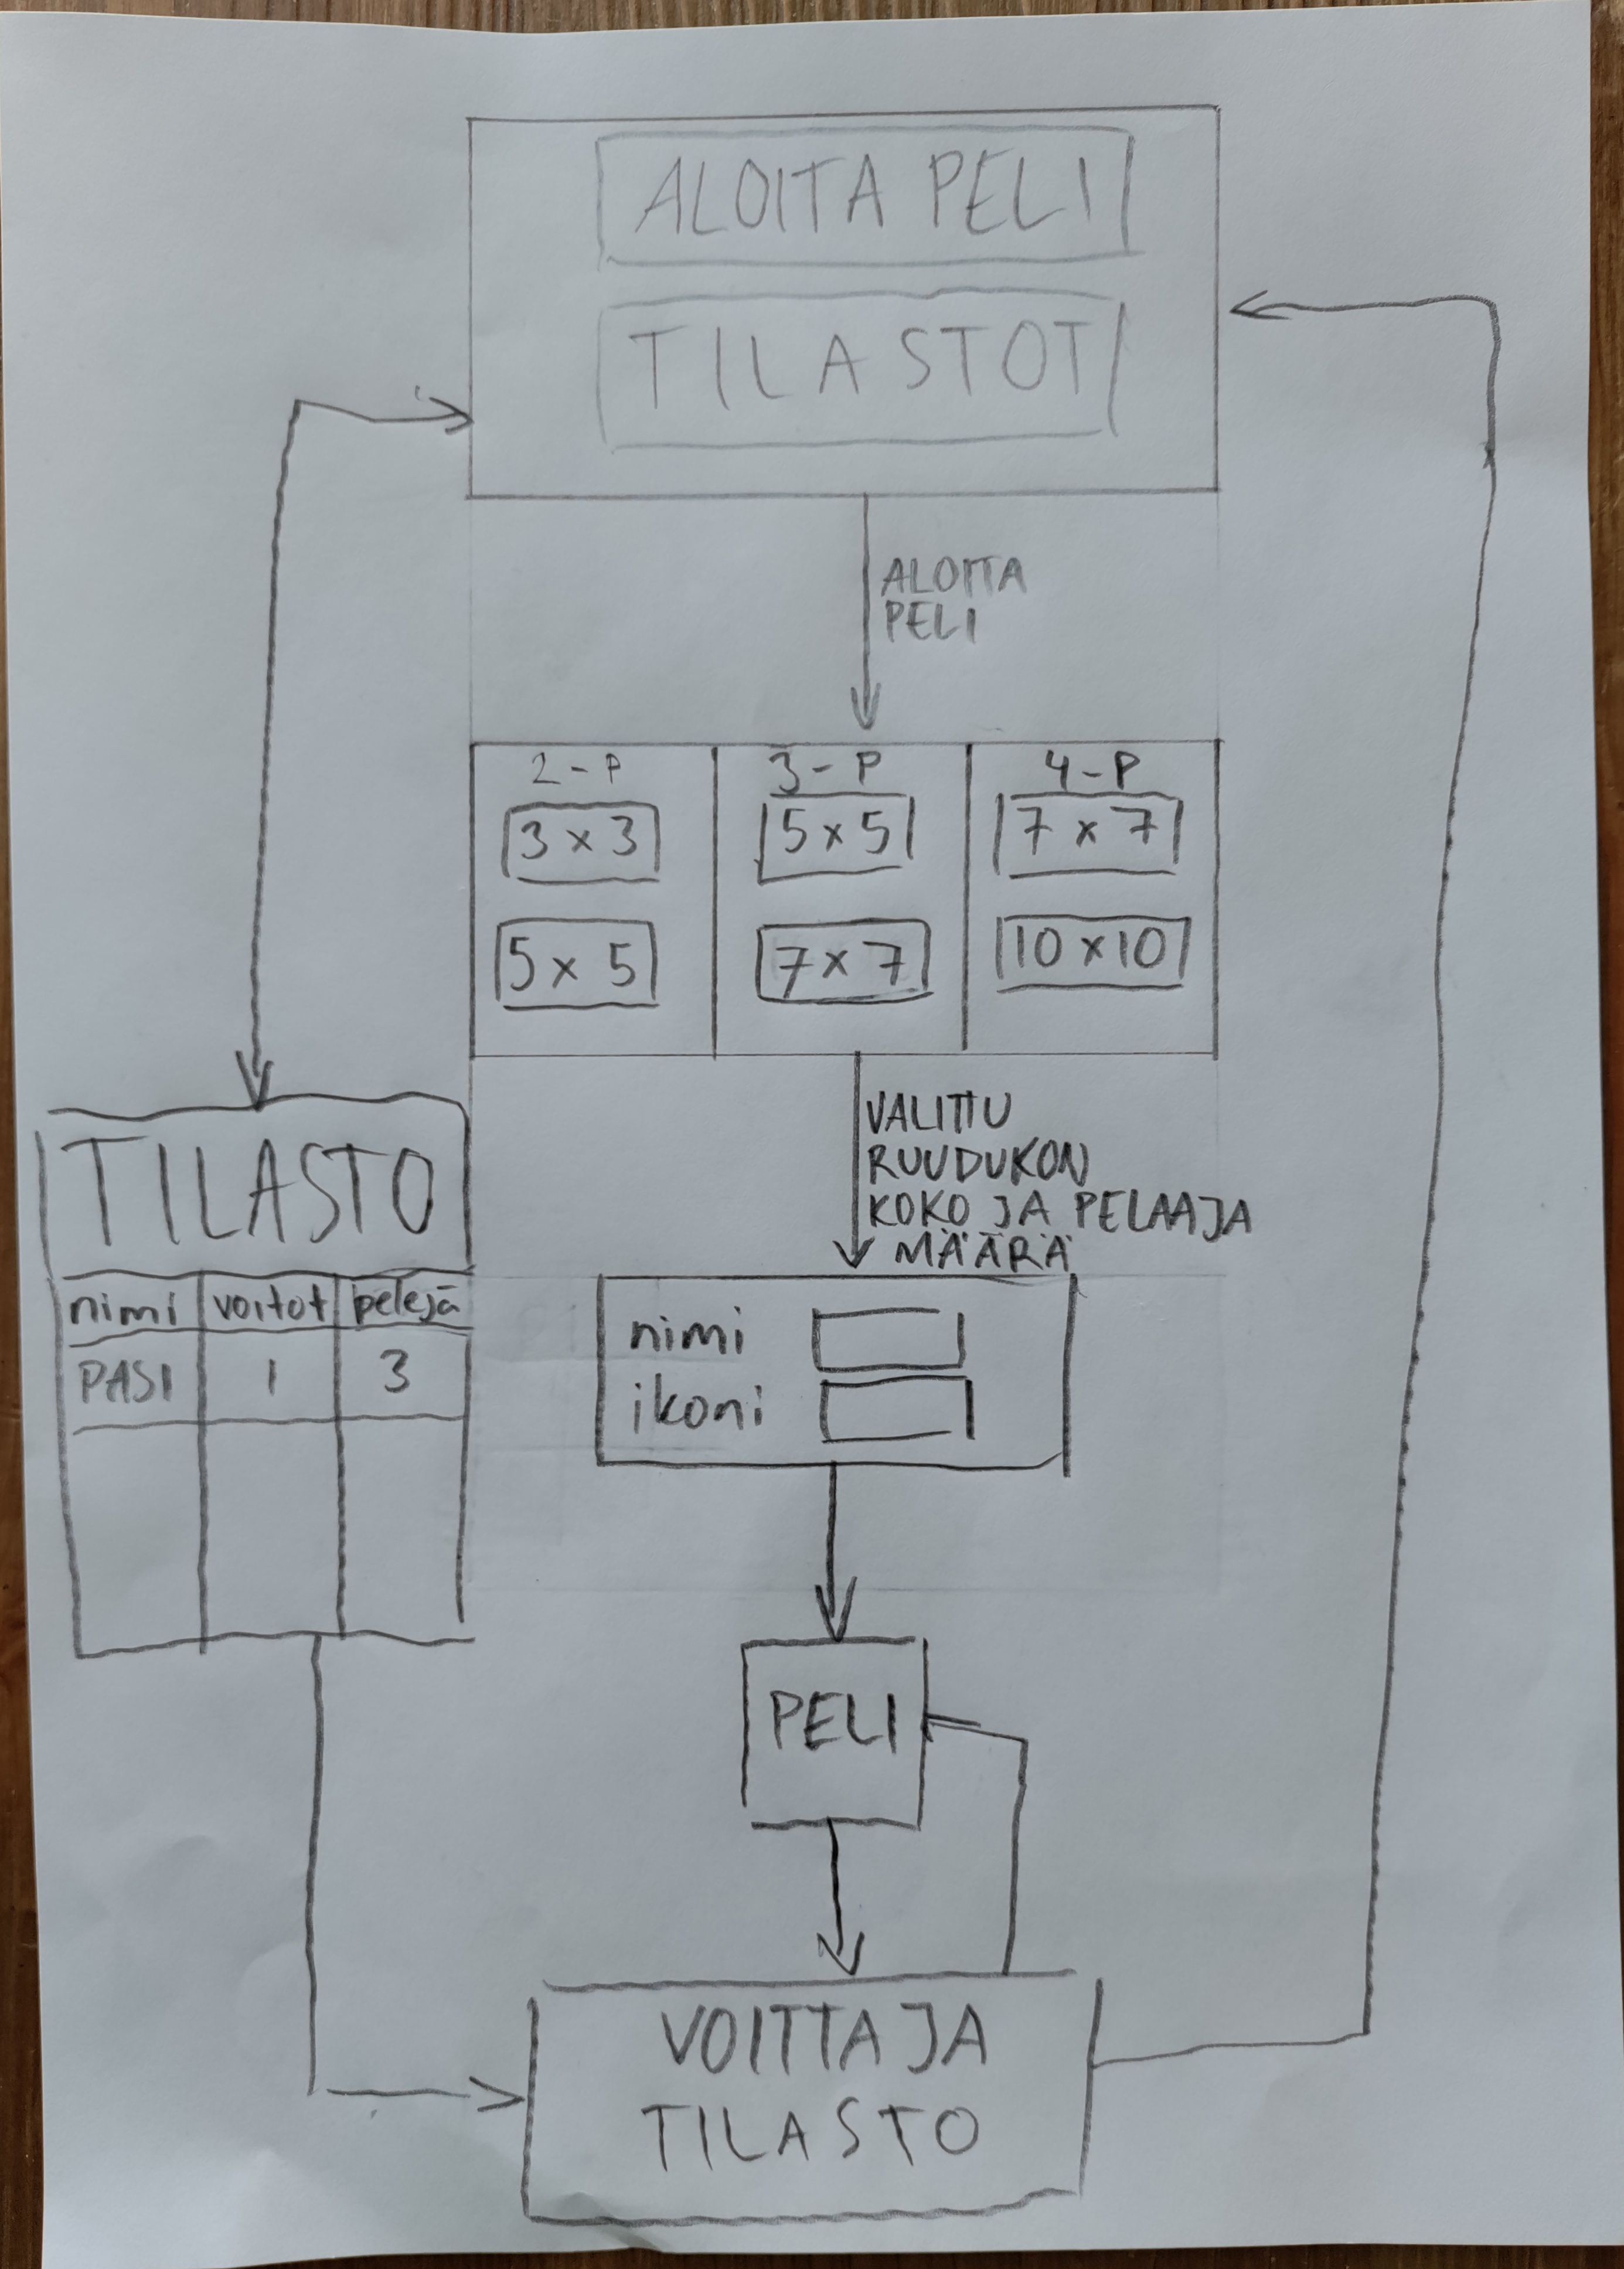 ALOITA PELI
TILASTOT
ALOITA
PELI
2-P
3-P
4-P
3 x 3
5 x 5
7 x 7
5 x 5
7 x 7
10 x 10
VALITTU
RUUDUKON
KOKO JA PELAAJA
MÄÄRÄ
TILASTO
nimi voitot pelejä
PASI 1 3
nimi
ikoni
PELI
VOITTAJA
TILASTO